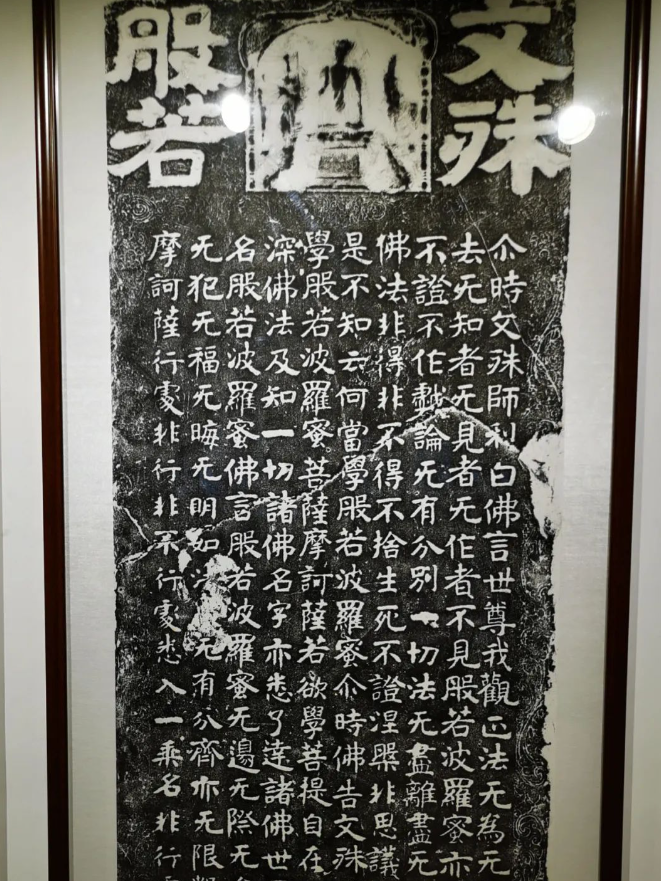 文殊
般若
尒時文殊師利白佛言世尊我觀正法无為无
去无知者无見者无作者不見般若波羅蜜亦
不證不作戲論无有分別一切法无盡離盡无
佛法非得非不得不捨生死不證涅槃非思議
是不知云何當學般若波羅蜜尒時佛告文殊
學般若波羅蜜菩薩摩訶薩若欲學菩提自在
深佛法及知一切諸佛名字亦悉了達諸佛世
名般若波羅蜜佛言般若波羅蜜无邊无際无
无犯无福无晦无明如法无有分齊亦无限
摩訶薩行處非行非不行處悉入一乘名非行